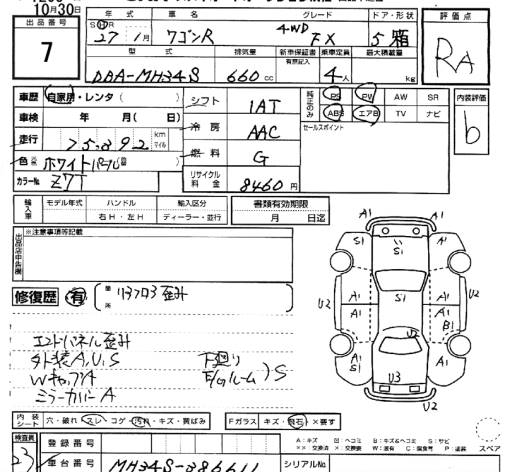 10月30日
出品番号
7
年式 車名 グレード ドア・形状
S H R 27年 1月 ワゴンR 4WD FX 5 箱
型式 排気量 新車保証書 有無記入 乗車定員 最大積載量
DBA-MH34S 660cc 4人 kg
評価点
RA
車歴 自家用・レンタ( )
車検 年 月(日)
走行 75,892 km マイル
色 ホワイト パール
カラーNo. Z7T
シフト 1AT
冷房 AAC
燃料 G
リサイクル料金 8460円
純正のみ PS PW AW SR
ABS エアB TV ナビ
セールスポイント
内装評価
b
輸入車 モデル年式 ハンドル 輸入区分
右H・左H ディーラー・並行
書類有効期限
月 日迄
出品店申告欄 ※注意事項等記載
修復歴 有 箇所 リヤフロア歪み
エンドパネル歪み
外装A,U,S
WキャップA
ミラーカバーA
下廻り
E/Gルーム
S
A1
A1 S1 A1
S1 A1
U2 A1 S1 A1 U2
A1 A1 B1
U2
U3
U2
内装シート 穴・破れ・スレ・コゲ・汚れ・キズ・黄ばみ Fガラス キズ・飛石・×要す
検査員 登録番号
車台番号 MH34S-386611 シリアルNo.
A:キズ 凹:ヘコミ B:キズ&ヘコミ S:サビ
××:交換済 ×:要交換 W:波有 C:腐食有 P:塗装 スペア